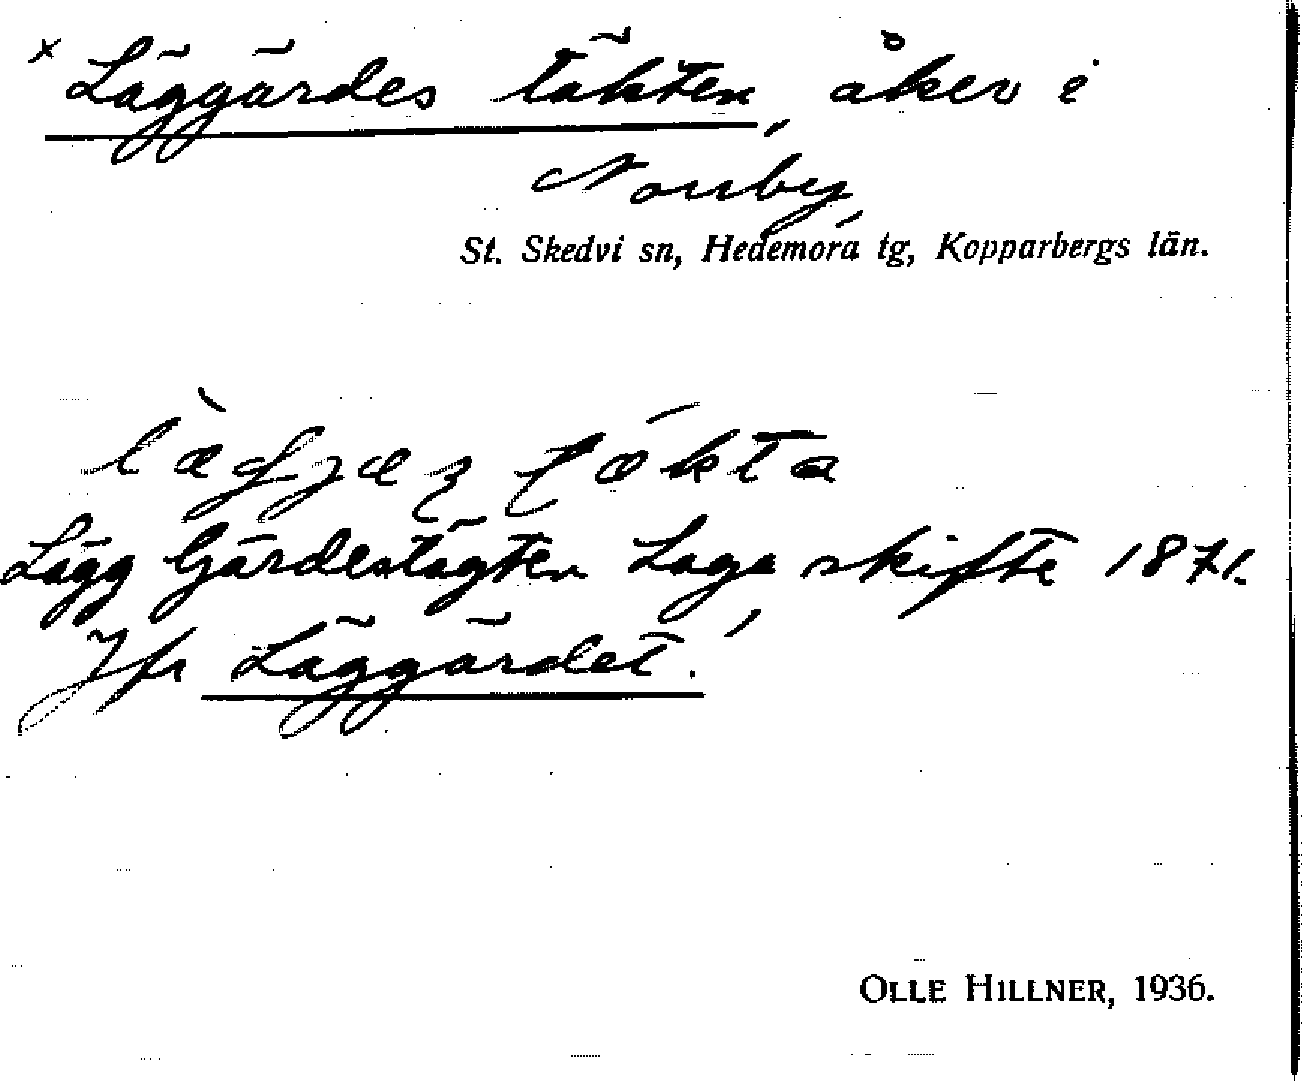 × Läggärdes täkten, åker i
Norrby,
St. Skedvi sn, Hedemora tg, Kopparbergs län.
Lägg Gärdestägten Laga skifte 1871.
Jfr Läggärdet.
OLLE HILLNER, 1936.